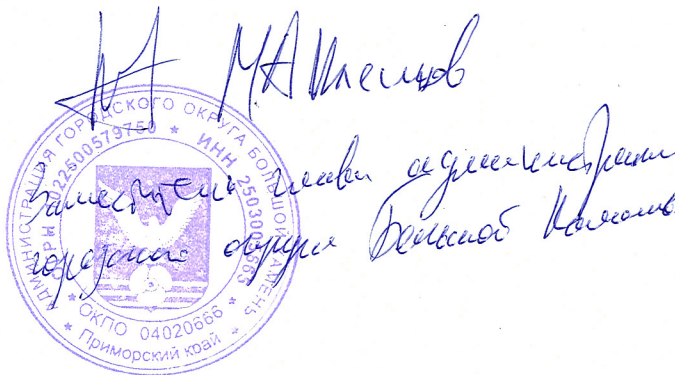 М.А.
Заместитель главы администрации
городского округа Большой Камень
АДМИНИСТРАЦИЯ ГОРОДСКОГО ОКРУГА БОЛЬШОЙ КАМЕНЬ
ИНН
ОКПО 04020666
* Приморский край *